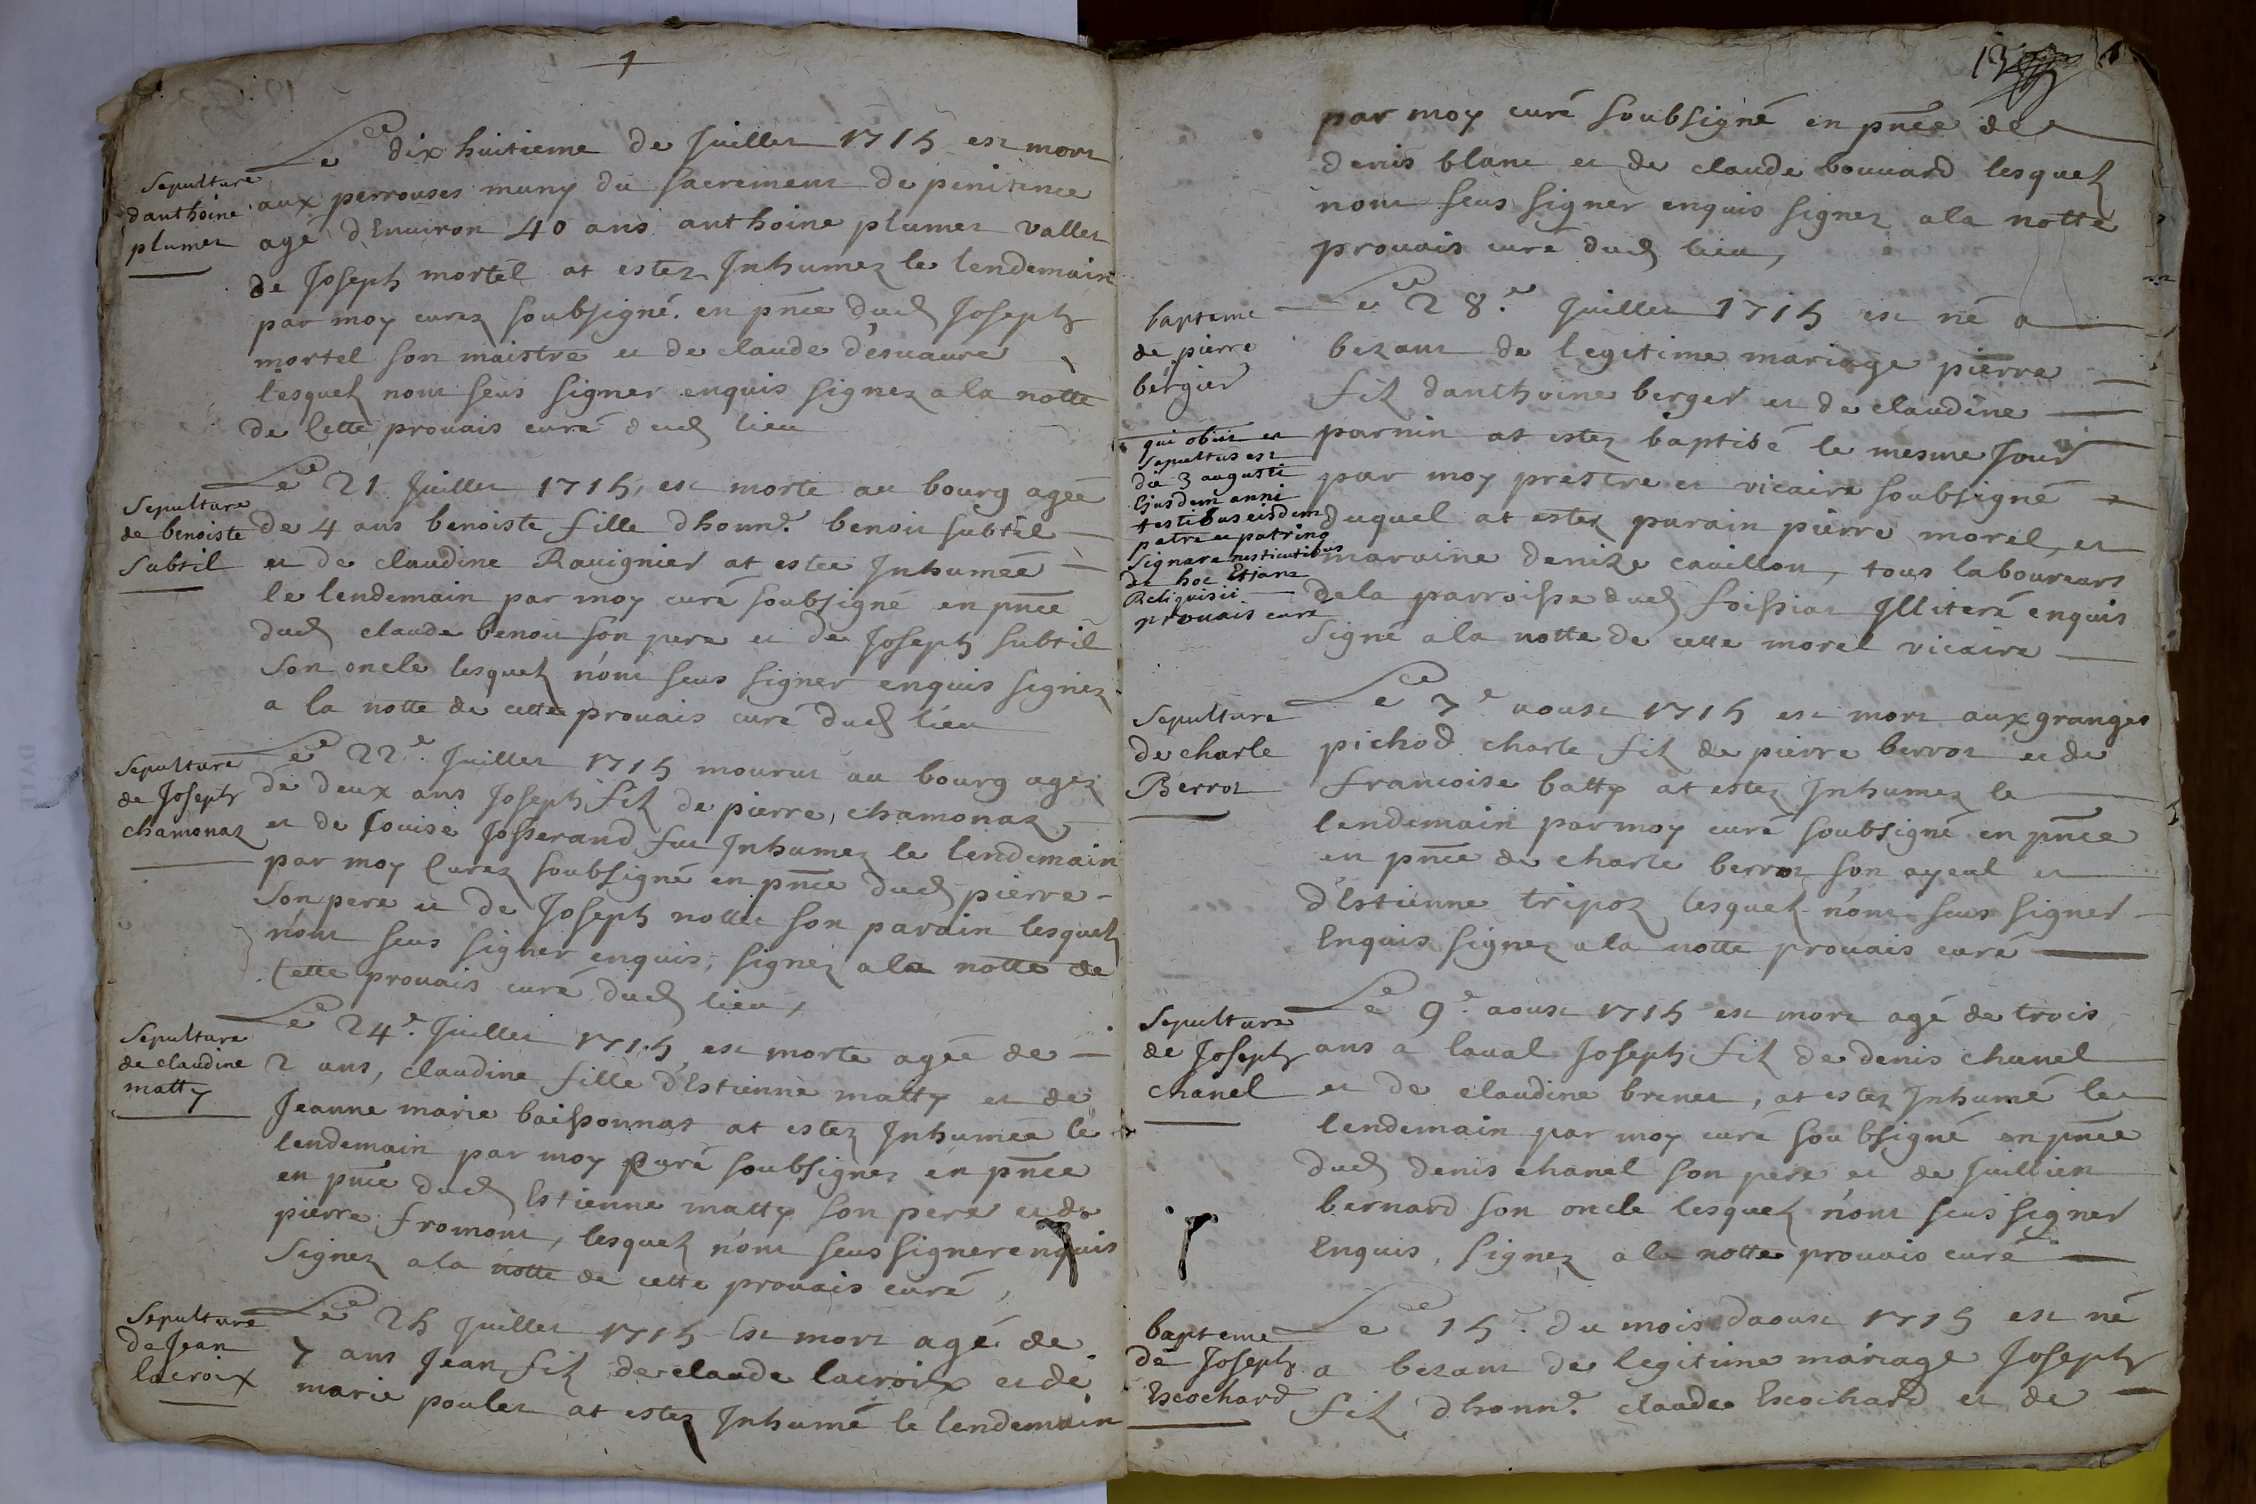 Le dix huitieme de Juillet 1715 est mort
Sepulture
danthoine
plumet
aux perrouses muny du sacrement de penitence
agé dEnuiron 40 ans anthoine plumet vallet
de Joseph mortel at estez Inhumez le lendemain
par moy curez soubsigné en pnce dud Joseph
mortel son maistre et de claude desuaure
lesquelz nont seus signer enquis signez a la notte
de Cette prouais curé dud lieu
Sepulture
de benoiste
Subtil
Le 21 Juillet 1715, est morte au bourg agée
de 4 ans benoiste fille dhonn.e benoit subtil
et de claudine Rauignier at estee Inhumée
le lendemain par moy curé soubsigné en pnce
dud claude benoit son pere et de Joseph subtil
son oncle lesquelz n'ont seus signer enquis signez
a la notte de cette prouais curé dud lieu
Sepulture
de Joseph
chamonaz
Le 22.e Juillet 1715 mourut au bourg agez
de deux ans Joseph filz de pierre chamonaz
et de Louise Josserand fut Inhumez le lendemain
par moy Curez soubsigné en pnce dud pierre
son pere et de Joseph nottet son parain lesquelz
n'ont seus signer enquis, signez a la notte de
Cette prouais curé dud lieu,
Sepulture
de claudine
matty
Le 24.e Juillet 1715 est morte agée de
2 ans, claudine fille d'Estienne matty et de
Jeanne marie baissonnat at estez Inhumee le
lendemain par moy Curé soubsignez en pnce
en pnce dud Estienne matty son pere et de
pierre fromont, lesquelz n'ont seus signer enquis
signez a la notte de cette prouais curé,
Sepulture
de Jean
lacroix
Le 25 Juillet 1715 Est mort agé de
7 ans Jean filz de claude lacroix et de
marie poulet at estez Inhumé le lendemain
13
par moy curé soubsigné en pnce de
denis blanc et de claude bouuard lesquelz
nont seus signer enquis signez a la notte
prouais curé dud lieu,
bapteme
de pierre
bergier
Le 28.e Juillet 1715 est né a
bezant de legitime mariage pierre
filz danthoine berger et de claudine
parnin at estez baptisé le mesme Jour
par moy prestre et vicaire soubsigné
duquel at estez parain pierre morel, et
maraine denize cauillon, tous laboureurs
dela parroisse dud foissiat Illiteré enquis
signé a la notte de cette morel vicaire
qui obiit et
sepultus est
die 3 augusti
Ejusdem anni
testibus eisdem
patre et patrino
signare nescientibus
de hoc Etiam
Requisiti
prouais curé
Sepulture
de charle
Berrot
Le 7.e aoust 1715 est mort aux granges
pichod charle filz de pierre berrot et de
francoise batty at estez Inhumez le
lendemain par moy curé soubsigné en pnce
en pnce de charle berrot son ayeul et
d'Estienne tripoz lesquelz n'ont seus signer
Enquis signez a la notte prouais curé
Sepulture
de Joseph
chanel
Le 9.e aoust 1715 est mort agé de trois
ans a laual Joseph filz de denis chanel
et de claudine brunet, at estez Inhumé le
lendemain par moy curé soubsigné en pnce
dud denis chanel son pere et de Juillien
bernard son oncle lesquelz n'ont seus signer
Enquis, signez a la notte prouais curé
bapteme
de Joseph
Escochard
Le 15.e du mois daoust 1715 est né
a bezant de legitime mariage Joseph
filz dhonn.e claude Escochard et de